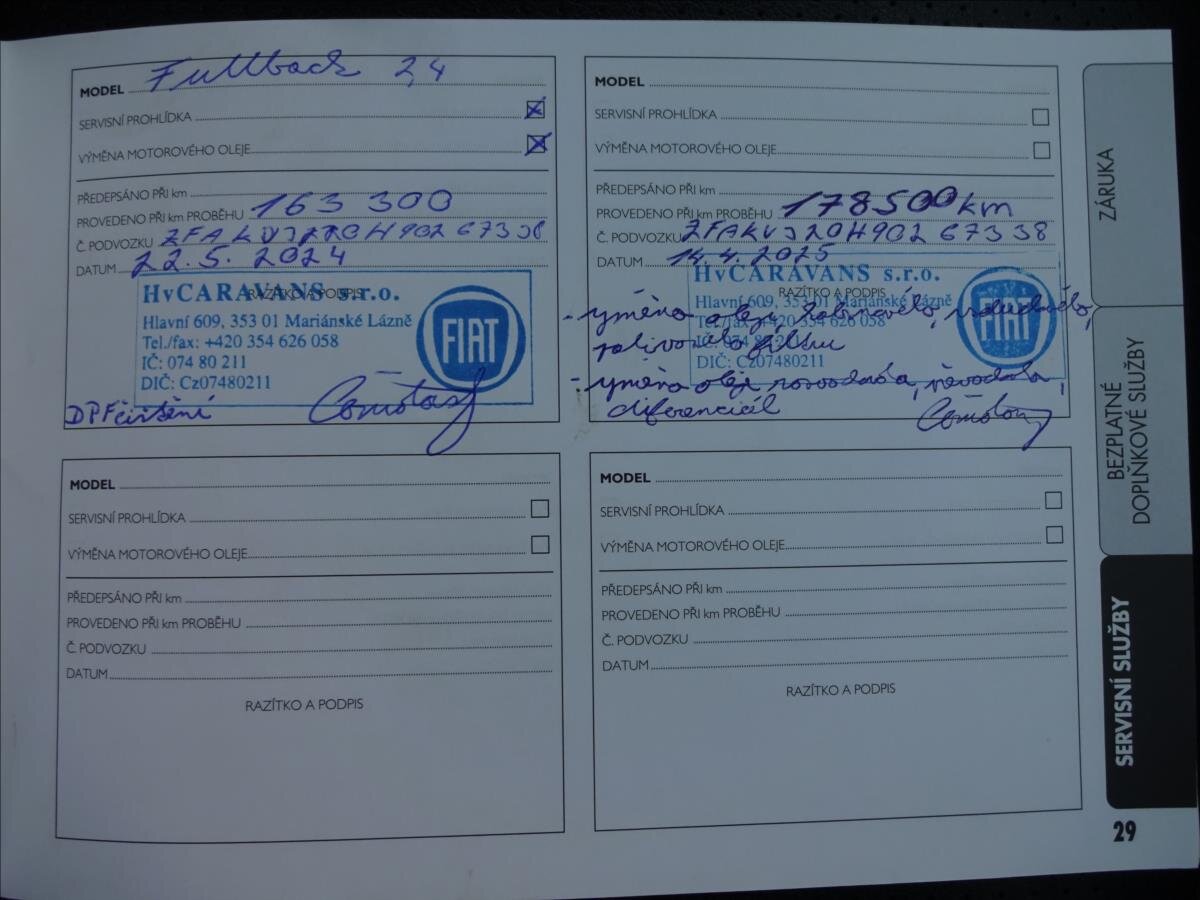 MODEL Fullback 2,4
SERVISNÍ PROHLÍDKA
VÝMĚNA MOTOROVÉHO OLEJE
PŘEDEPSÁNO PŘI km
PROVEDENO PŘI km PROBĚHU 163 300
Č. PODVOZKU
DATUM 22.5. 2024
RAZÍTKO A PODPIS
HvCARAVANS s.r.o.
Hlavní 609, 353 01 Mariánské Lázně
Tel./fax: +420 354 626 058
IČ: 074 80 211
DIČ: Cz07480211
FIAT
DPF čištění
MODEL
SERVISNÍ PROHLÍDKA
VÝMĚNA MOTOROVÉHO OLEJE
PŘEDEPSÁNO PŘI km
PROVEDENO PŘI km PROBĚHU 178500 km
Č. PODVOZKU ZFAKVJ20H90267338
DATUM 14.4.2025
RAZÍTKO A PODPIS
HvCARAVANS s.r.o.
Hlavní 609, 353 01 Mariánské Lázně
Tel./fax: +420 354 626 058
IČ: 074 80 211
DIČ: Cz07480211
FIAT
- výměna oleje kabinového, vzduchového,
palivového filtru
- výměna oleje rozvodovka, převodovka,
diferenciál
MODEL
SERVISNÍ PROHLÍDKA
VÝMĚNA MOTOROVÉHO OLEJE
PŘEDEPSÁNO PŘI km
PROVEDENO PŘI km PROBĚHU
Č. PODVOZKU
DATUM
RAZÍTKO A PODPIS
MODEL
SERVISNÍ PROHLÍDKA
VÝMĚNA MOTOROVÉHO OLEJE
PŘEDEPSÁNO PŘI km
PROVEDENO PŘI km PROBĚHU
Č. PODVOZKU
DATUM
RAZÍTKO A PODPIS
ZÁRUKA
BEZPLATNÉ
DOPLŇKOVÉ SLUŽBY
SERVISNÍ SLUŽBY
29